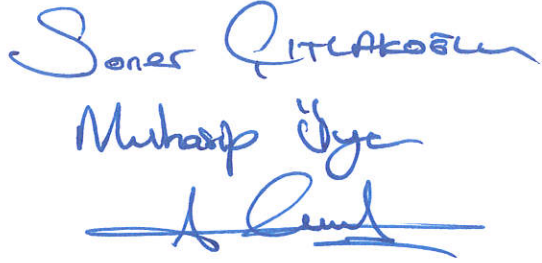 Soner ÇITLAKOĞLU
Muhasip Üye